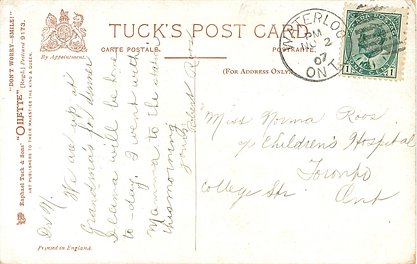 TUCK'S POST CARD
CARTE POSTALE.
POSTKARTE.
By Appointment.
(FOR ADDRESS ONLY.)
"DON'T WORRY—SMILE!"
"OILETTE" (Regd.) Postcard 9173.
Raphael Tuck & Sons'
ART PUBLISHERS TO THEIR MAJESTIES THE KING & QUEEN.
Printed in England.
WATERLOO
PM
2
07
ONT.
1
1
Dr N.
We are up at
Grandma's for dinner
will be home
to-day. I went with
Mamma to the
this morning
Miss Norma Roos
Children's Hospital
Toronto
College Str.
Ont